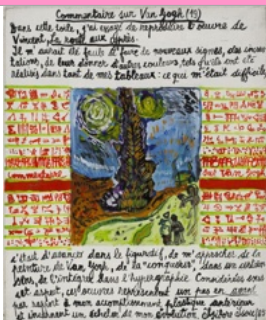 Commentaire sur Van Gogh (19)
Dans cette toile, j'ai essayé de reproduire l'oeuvre de
Vincent, La route aux cyprès.
Il m'aurait été facile d'
de nouveaux signes, des
de leur donner d'autres couleurs, tels qu'ils ont été
réalisés dans tant de mes tableaux : ce qui m'était difficile,
commentaire
sur Van Gogh
c'était d'avancer dans le figuratif, de m'approcher de la
peinture de Van Gogh, de la "conquérir", dans
de l'intégrer dans l'hypergraphie. Considérées sous
cet aspect, ces oeuvres représentent un pas en avant
par rapport à mon accomplissement plastique antérieur
un échelon de mon évolution Isidore Isou